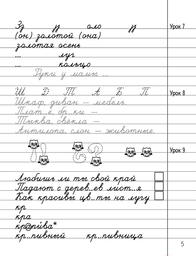 Зз зз оло зз
Урок 7
(он) золотой (она)
золотая осень
... луг
... кольцо
Руки у мамы ...
Ш Д Т А Б П
Урок 8
Шкаф, диван — мебель.
Плат..е, бр..ки —
Тыква, свёкла —
Антилопа, слон — животные.
Урок 9
Любишь ли ты свой край
Падают с дерев..ев лист..я
Как красивы цв..ты на лугу
кр
кра
крапива*
кр..пивный кр..пивница
5